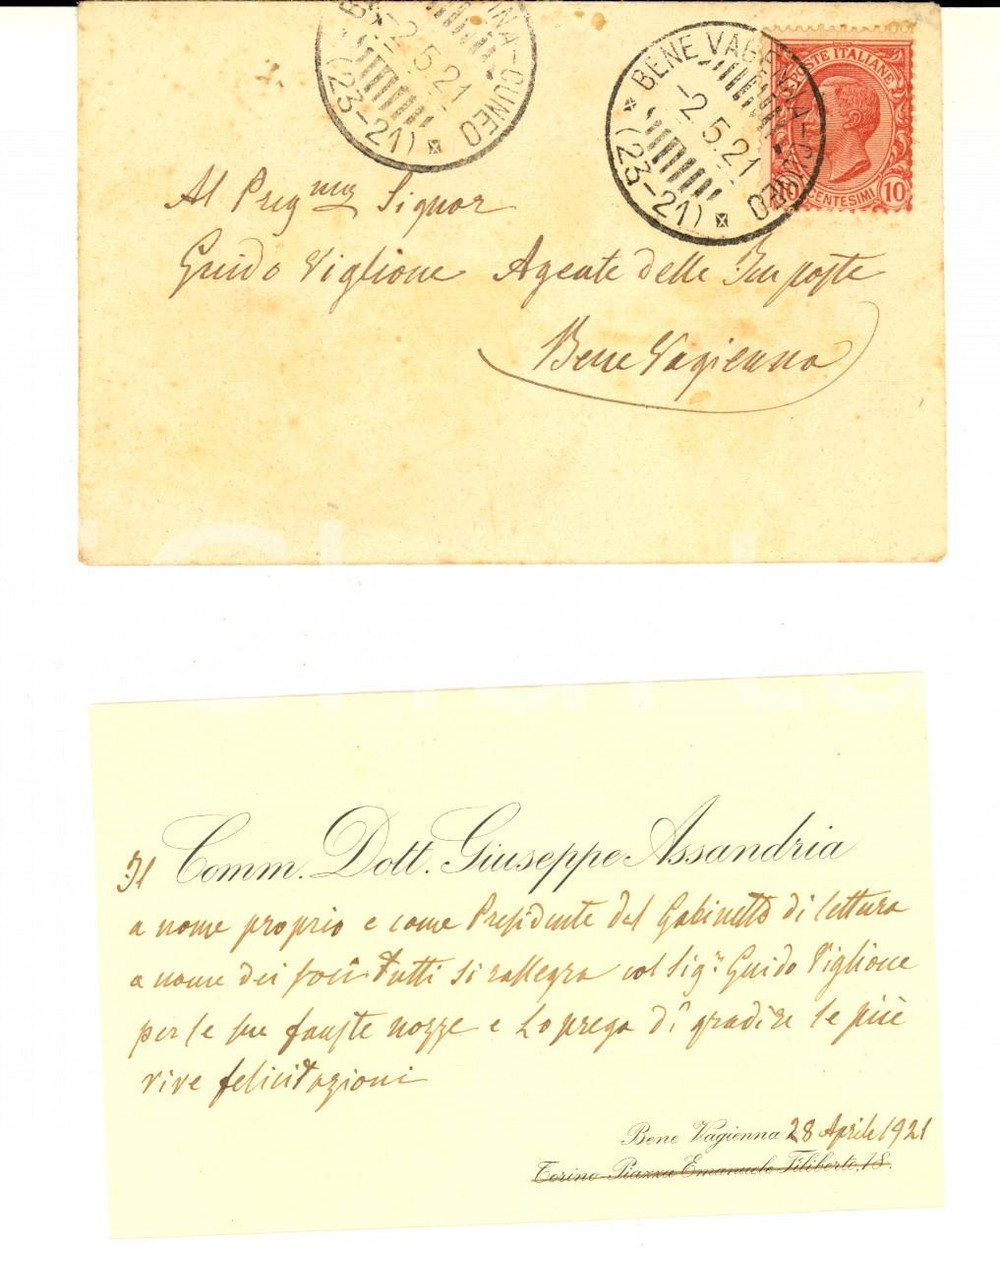 BENE VAGIENNA-CUNEO
-2.5.21
(23-21)
BENE VAGENNA-CUNEO
-2.5.21
(23-21)
POSTE ITALIANE
CENTESIMI 10
Al Preg.mo Signor
Guido Viglione Agente delle Imposte
Bene Vagienna
Il Comm. Dott. Giuseppe Assandria
a nome proprio e come Presidente del Gabinetto di lettura
a nome dei soci tutti si rallegra col Sigr. Guido Viglione
per le sue fauste nozze e Lo prega di gradire le più
vive felicitazioni
Bene Vagienna 28 Aprile 1921
Torino-Piazza Emanuele Filiberto, 18.